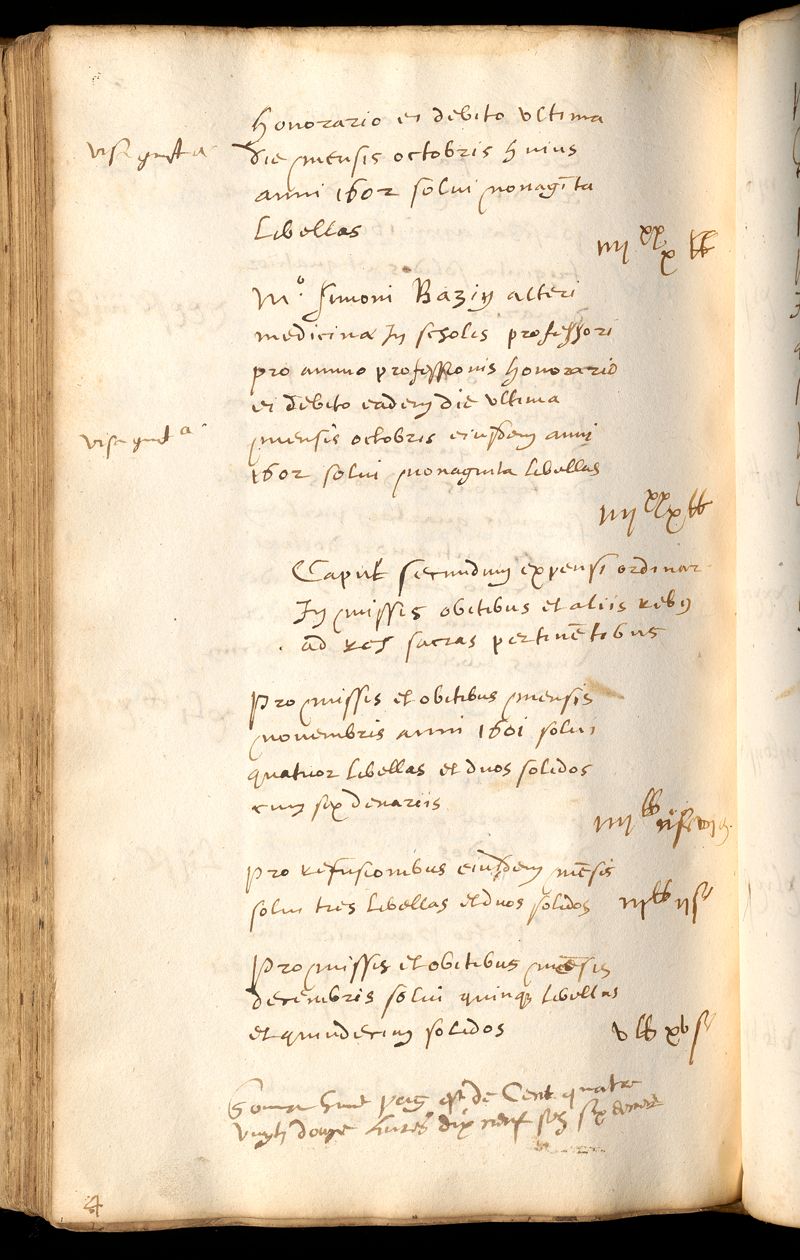 honorario ei debito ultima
visa quitta
die mensis octobris huius
anni 1602 solui nonaginta
libellas
iiij xx x lb
Mo. Simoni Bazin alteri
medicinæ In scholis professori
pro annuo professionis honorario
ei debito eadem die ultima
visa quitta
mensis octobris eiusdem anni
1602 solui nonaginta libellas
iiij xx x lb
Caput secundum expensi ordinar
In missis obitibus et aliis rebus
ad res sacras pertinētibus
Pro missis et obitibus mensis
novembris anni 1601 solui
quatuor libellas et duos solidos
cum sex denariis
iiij lb ij s vj d
Pro refusionibus eiusdem mēsis
solui tres libellas et duos solidos iij lb ij s
Pro missis et obitibus mēsis
decembris solui quinq libellas
et quindecim solidos v lb xv s
Soma huius pag est de Cent quatre
vingtz douze livres dix neuf solz six deniers
4